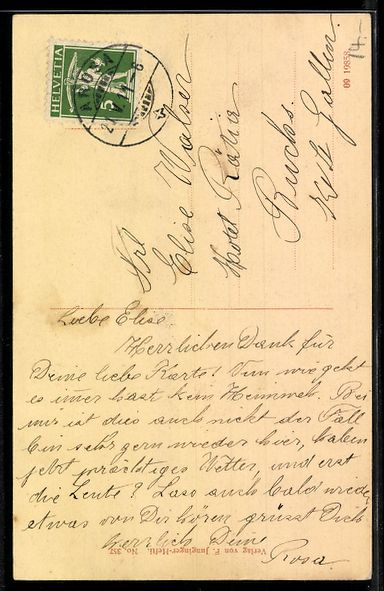 HELVETIA
5
AROSA
Frl
Elise Walser
Hotel Rätia
Buchs.
Kt St Gallen.
14.-
09 19858
Liebe Elise.
Herrlichen Dank für
Deine liebe Karte! Nun wie geht
es imer hast kein Heimweh. Bei
mir ist dies auch nicht der Fall
bin sehr gern wieder hier, haben
jetzt prächtiges Wetter, und erst
die Leute? Lass auch bald wieder
etwas von Dir hören grüsst Dich
herzlich Deine
Rosa.
Verlag von F. Junginger-Hefti. No. 357